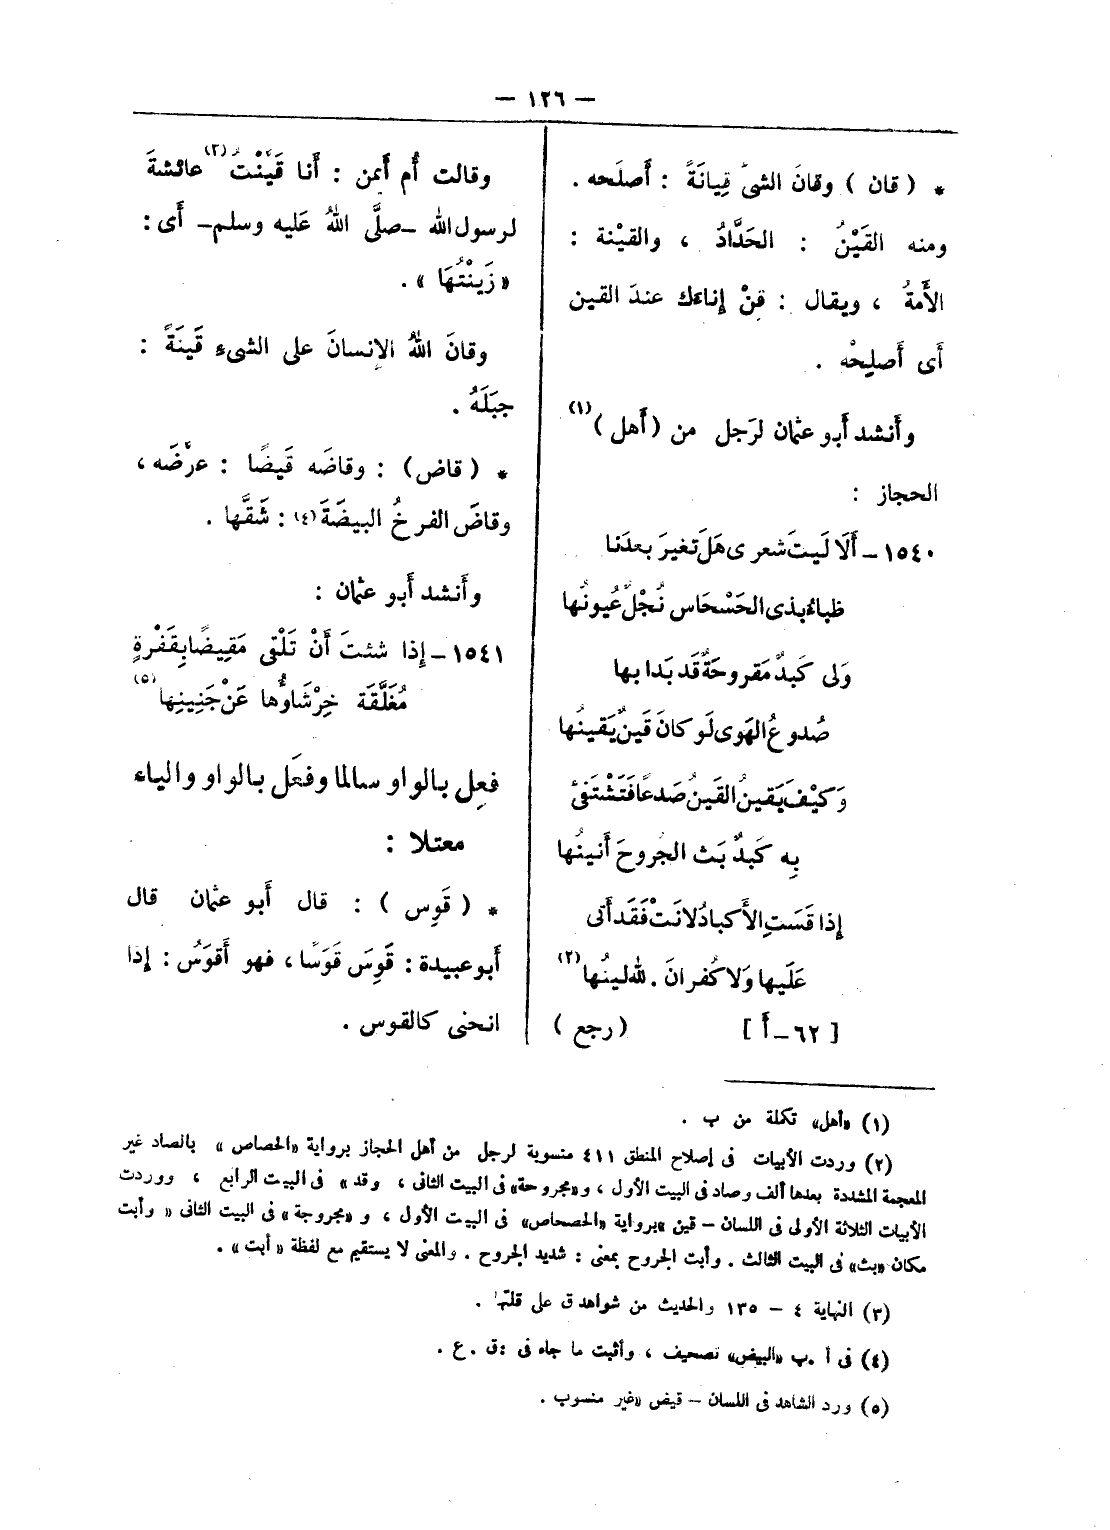 — ١٢٦ —
* ( قان ) وقانَ الشىَّ قِيانَةً : أَصلَحه .
ومنه القَيْنُ : الحَدَّادُ ، والقيْنة :
الأَمةُ ، ويقال : قِنْ إناءك عندَ القين
أَى أَصلِحْه .
وأَنشد أَبو عثمان لرَجل من (أَهل ) (١)
الحجاز :
١٥٤٠ ـ أَلَا لَيتَ شعرى هَل تغيرَ بعدَنا
ظباءٌ بذى الحَسْحَاس نُجْلٌ عُيونُها
وَلى كَبدٌ مَقروحَةٌ قَد بَدا بها
صُدوعُ الهَوى لَو كانَ قَينٌ يَقينُها
وَكَيْفَ يَقينُ القَينُ صَدعًا فَتَشْتَفىْ
بِه كَبدٌ بَث الجروحَ أَنينُها
إذا قَسَتِ الأَكبادُ لانَتْ فَقَد أَتى
عَلَيها وَلا كُفرانَ . لله لينُها (٢)
[ ٦٢ ـ أ ] ( رجع )
وقالت أُم أَيمن : أَنا قَيَّنْتُ (٣) عائشةَ
لرسول الله ـ صلَّى اللهُ عَليه وسلم ـ أَى :
« زَيَنْتُهَا » .
وقانَ اللهُ الإنسانَ على الشىءِ قَينَةً :
جبَلَهُ .
* ( قاض ) : وقاضَه قَيضًا : عرَّضَه ،
وقاضَ الفرخُ البيضَةَ (٤) : شَقَّها .
وأَنشد أَبو عثمان :
١٥٤١ ـ إذا شئتَ أَنْ تَلْقى مَقِيضًا بِقَفْرةٍ
مُغَلَّقَة خِرْشَاؤُها عَنْ جَنِينِها (٥)
فعِل بالواو سالما وفعَل بالواو والياء
معتلا :
* ( قَوِس ) : قال أَبو عثمان قال
أَبو عبيدة : قَوِسَ قَوَسًا ، فهو أَقوَسُ : إذا
انحنى كالقوس .
(١) «أهل» تكملة من ب .
(٢) وردت الأبيات فى إصلاح المنطق ٤١١ منسوبة لرجل من أهل الحجاز برواية «الحصاص » بالصاد غير
المعجمة المشددة بعدها ألف وصاد فى البيت الأول ، و«مجروحة» فى البيت الثانى ، وقد » فى البيت الرابع ، ووردت
الأبيات الثلاثة الأولى فى اللسان – قين «برواية «الحصحاص» فى البيت الأول ، و «مجروحة» فى البيت الثانى « وأبت
مكان «بث» فى البيت الثالث . وأبت الجروح بمعنى : شديد الجروح . والمعنى لا يستقيم مع لفظة « أبت » .
(٣) النهاية ٤ – ١٣٥ والحديث من شواهد ق على قلتها .
(٤) فى أ . ب «البيض» تصحيف ، وأثبت ما جاء فى : ق . ع .
(٥) ورد الشاهد فى اللسان – قيض «غير منسوب .